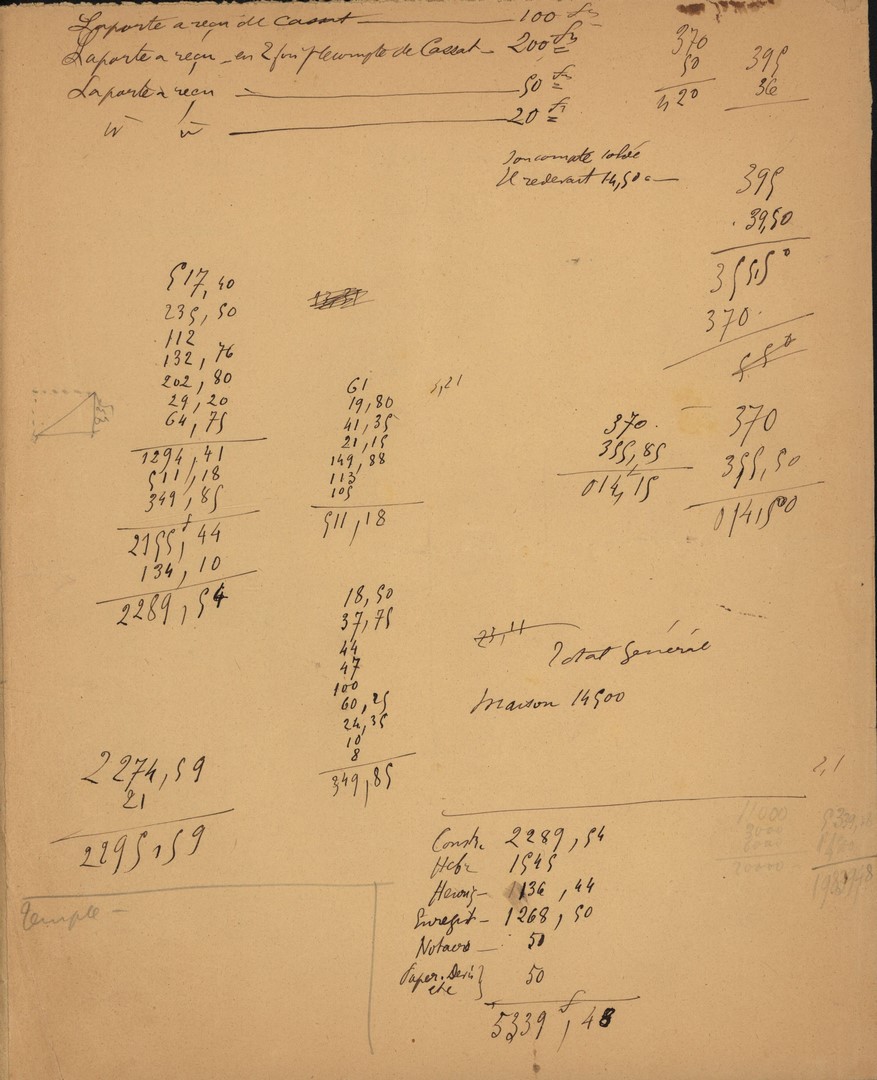 Laporte a reçu de Cassat — 100 fr
Laporte a reçu en 2 fois p le compte de Cassat — 200 fr
Laporte a reçu — 50 fr
20 fr
370
50
420
395
36
Son compte soldé
Il redevait 14,50 c
395
39,50
355,50
370
55
517,40
235,50
112
132,76
202,80
29,20
64,75
1294,41
511,18
349,85
2155,44
134,10
2289,54
61
19,80
41,35
21,15
149,88
113
105
511,18
5,21
370
355,85
014,15
370
355,50
014,50
18,50
37,75
44
47
100
60,25
24,35
10
8
349,85
23,11
Total Général
Maison 14500
2274,59
21
2295,59
2,1
Constr. 2289,54
1545
1136,44
Enregist — 1268,50
Notaire — 50
Papier.
etc 50
5339 f,48
11000
20000
Temple —